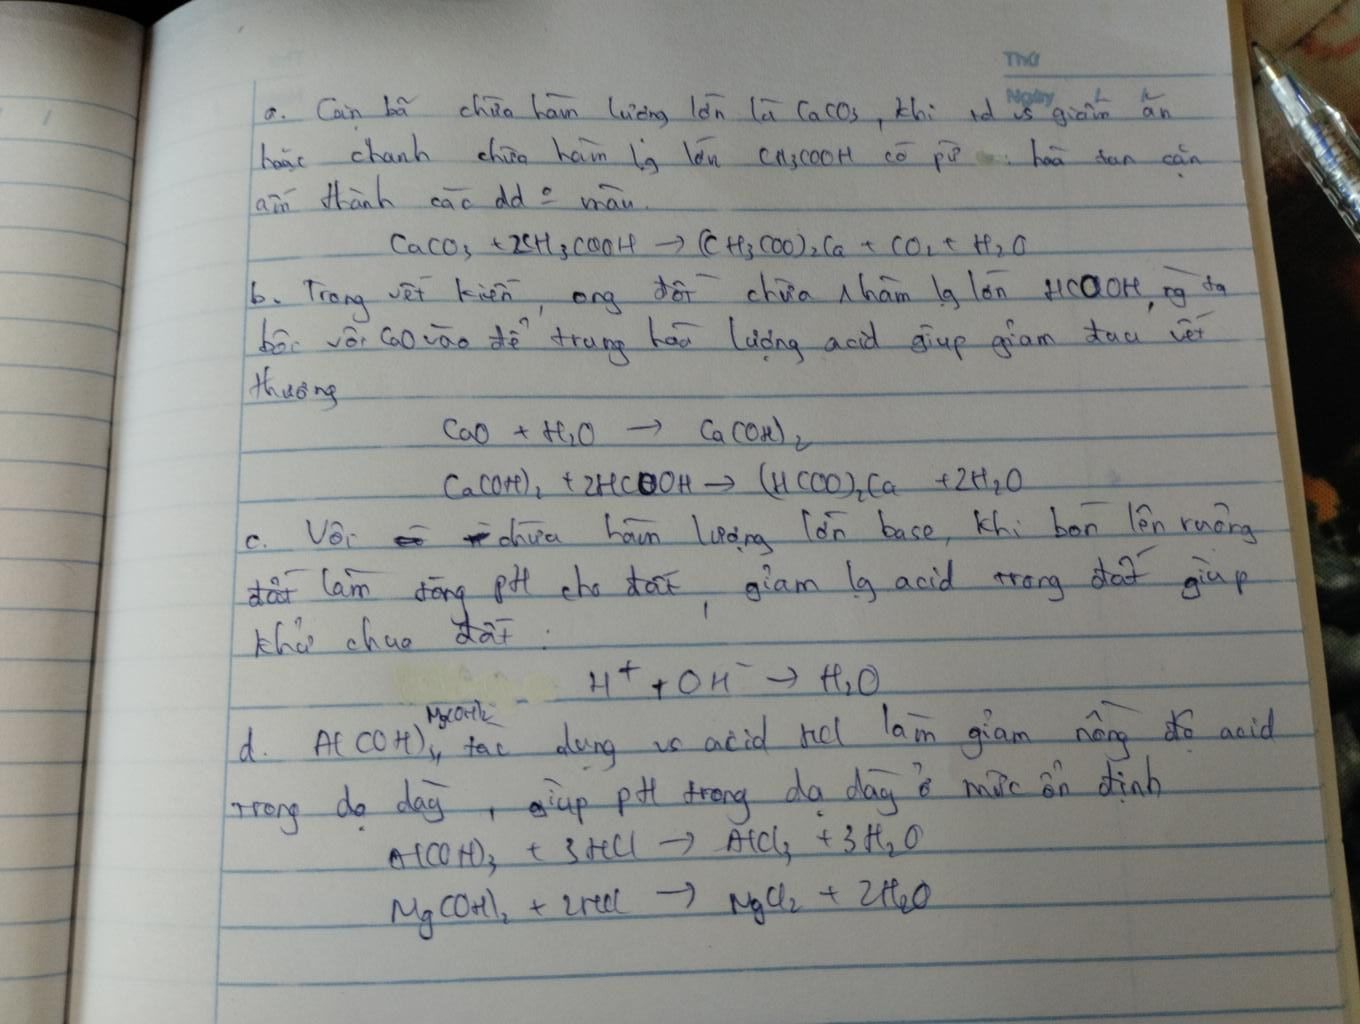 Thứ
Ngày
a. Cặn bã chứa hàm lượng lớn là CaCO3, khi td vs giấm ăn
hoặc chanh chứa hàm lg lớn CH3COOH có pứ hoà tan cặn
ấm thành các dd o màu.
CaCO3 + 2CH3COOH → (CH3COO)2Ca + CO2 + H2O
b. Trong vết kiến, ong đốt chứa hàm lg lớn HCOOH, ng ta
bôi vôi CaO vào để trung hoà lượng acid giúp giảm đau vết
thương
CaO + H2O → Ca(OH)2
Ca(OH)2 + 2HCOOH → (HCOO)2Ca + 2H2O
c. Vôi chứa hàm lượng lớn base, khi bón lên ruộng
đất làm tăng pH cho đất, giảm lg acid trong đất giúp
khử chua đất.
H+ + OH- → H2O
d. Al(OH)3, Mg(OH)2 tác dụng vs acid HCl làm giảm nồng độ acid
trong dạ dày, giúp pH trong dạ dày ở mức ổn định
Al(OH)3 + 3HCl → AlCl3 + 3H2O
Mg(OH)2 + 2HCl → MgCl2 + 2H2O